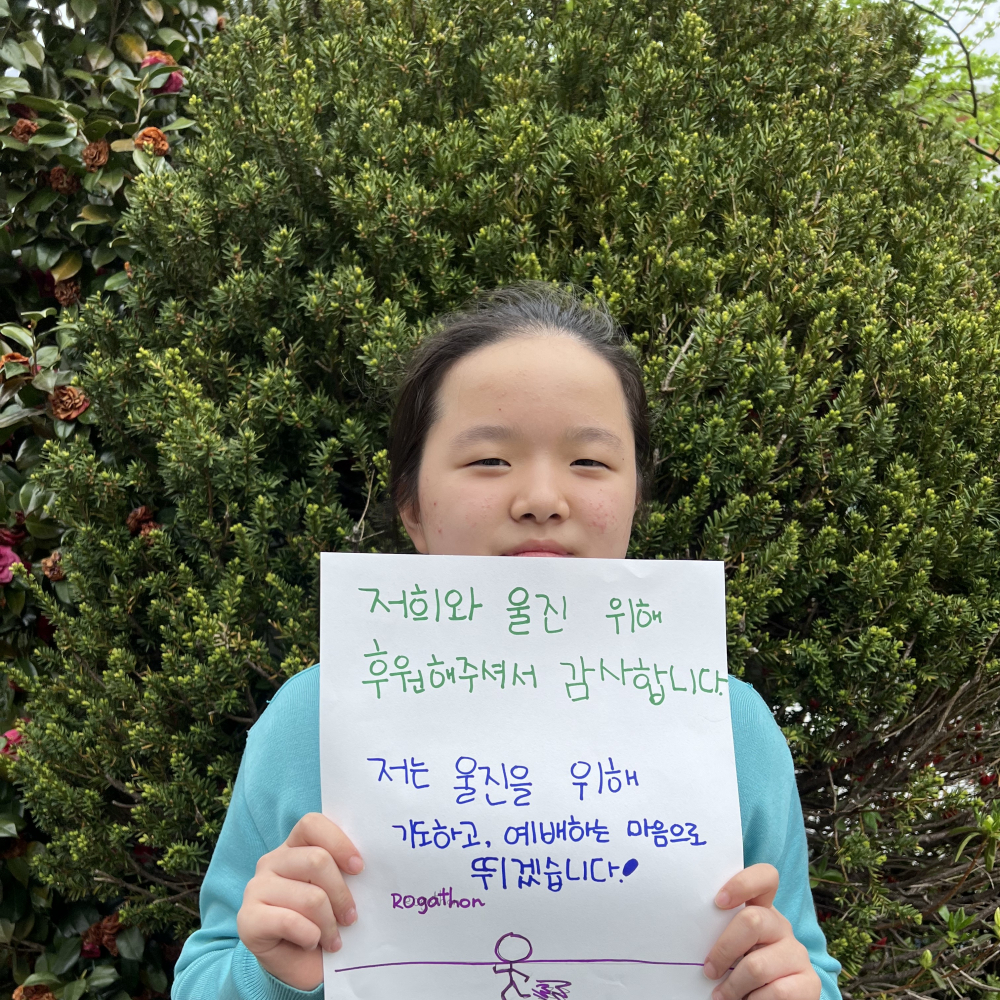 저희와 울진 위해
후원해주셔서 감사합니다
저는 울진을 위해
기도하고, 예배하는 마음으로
뛰겠습니다.
Rogathon